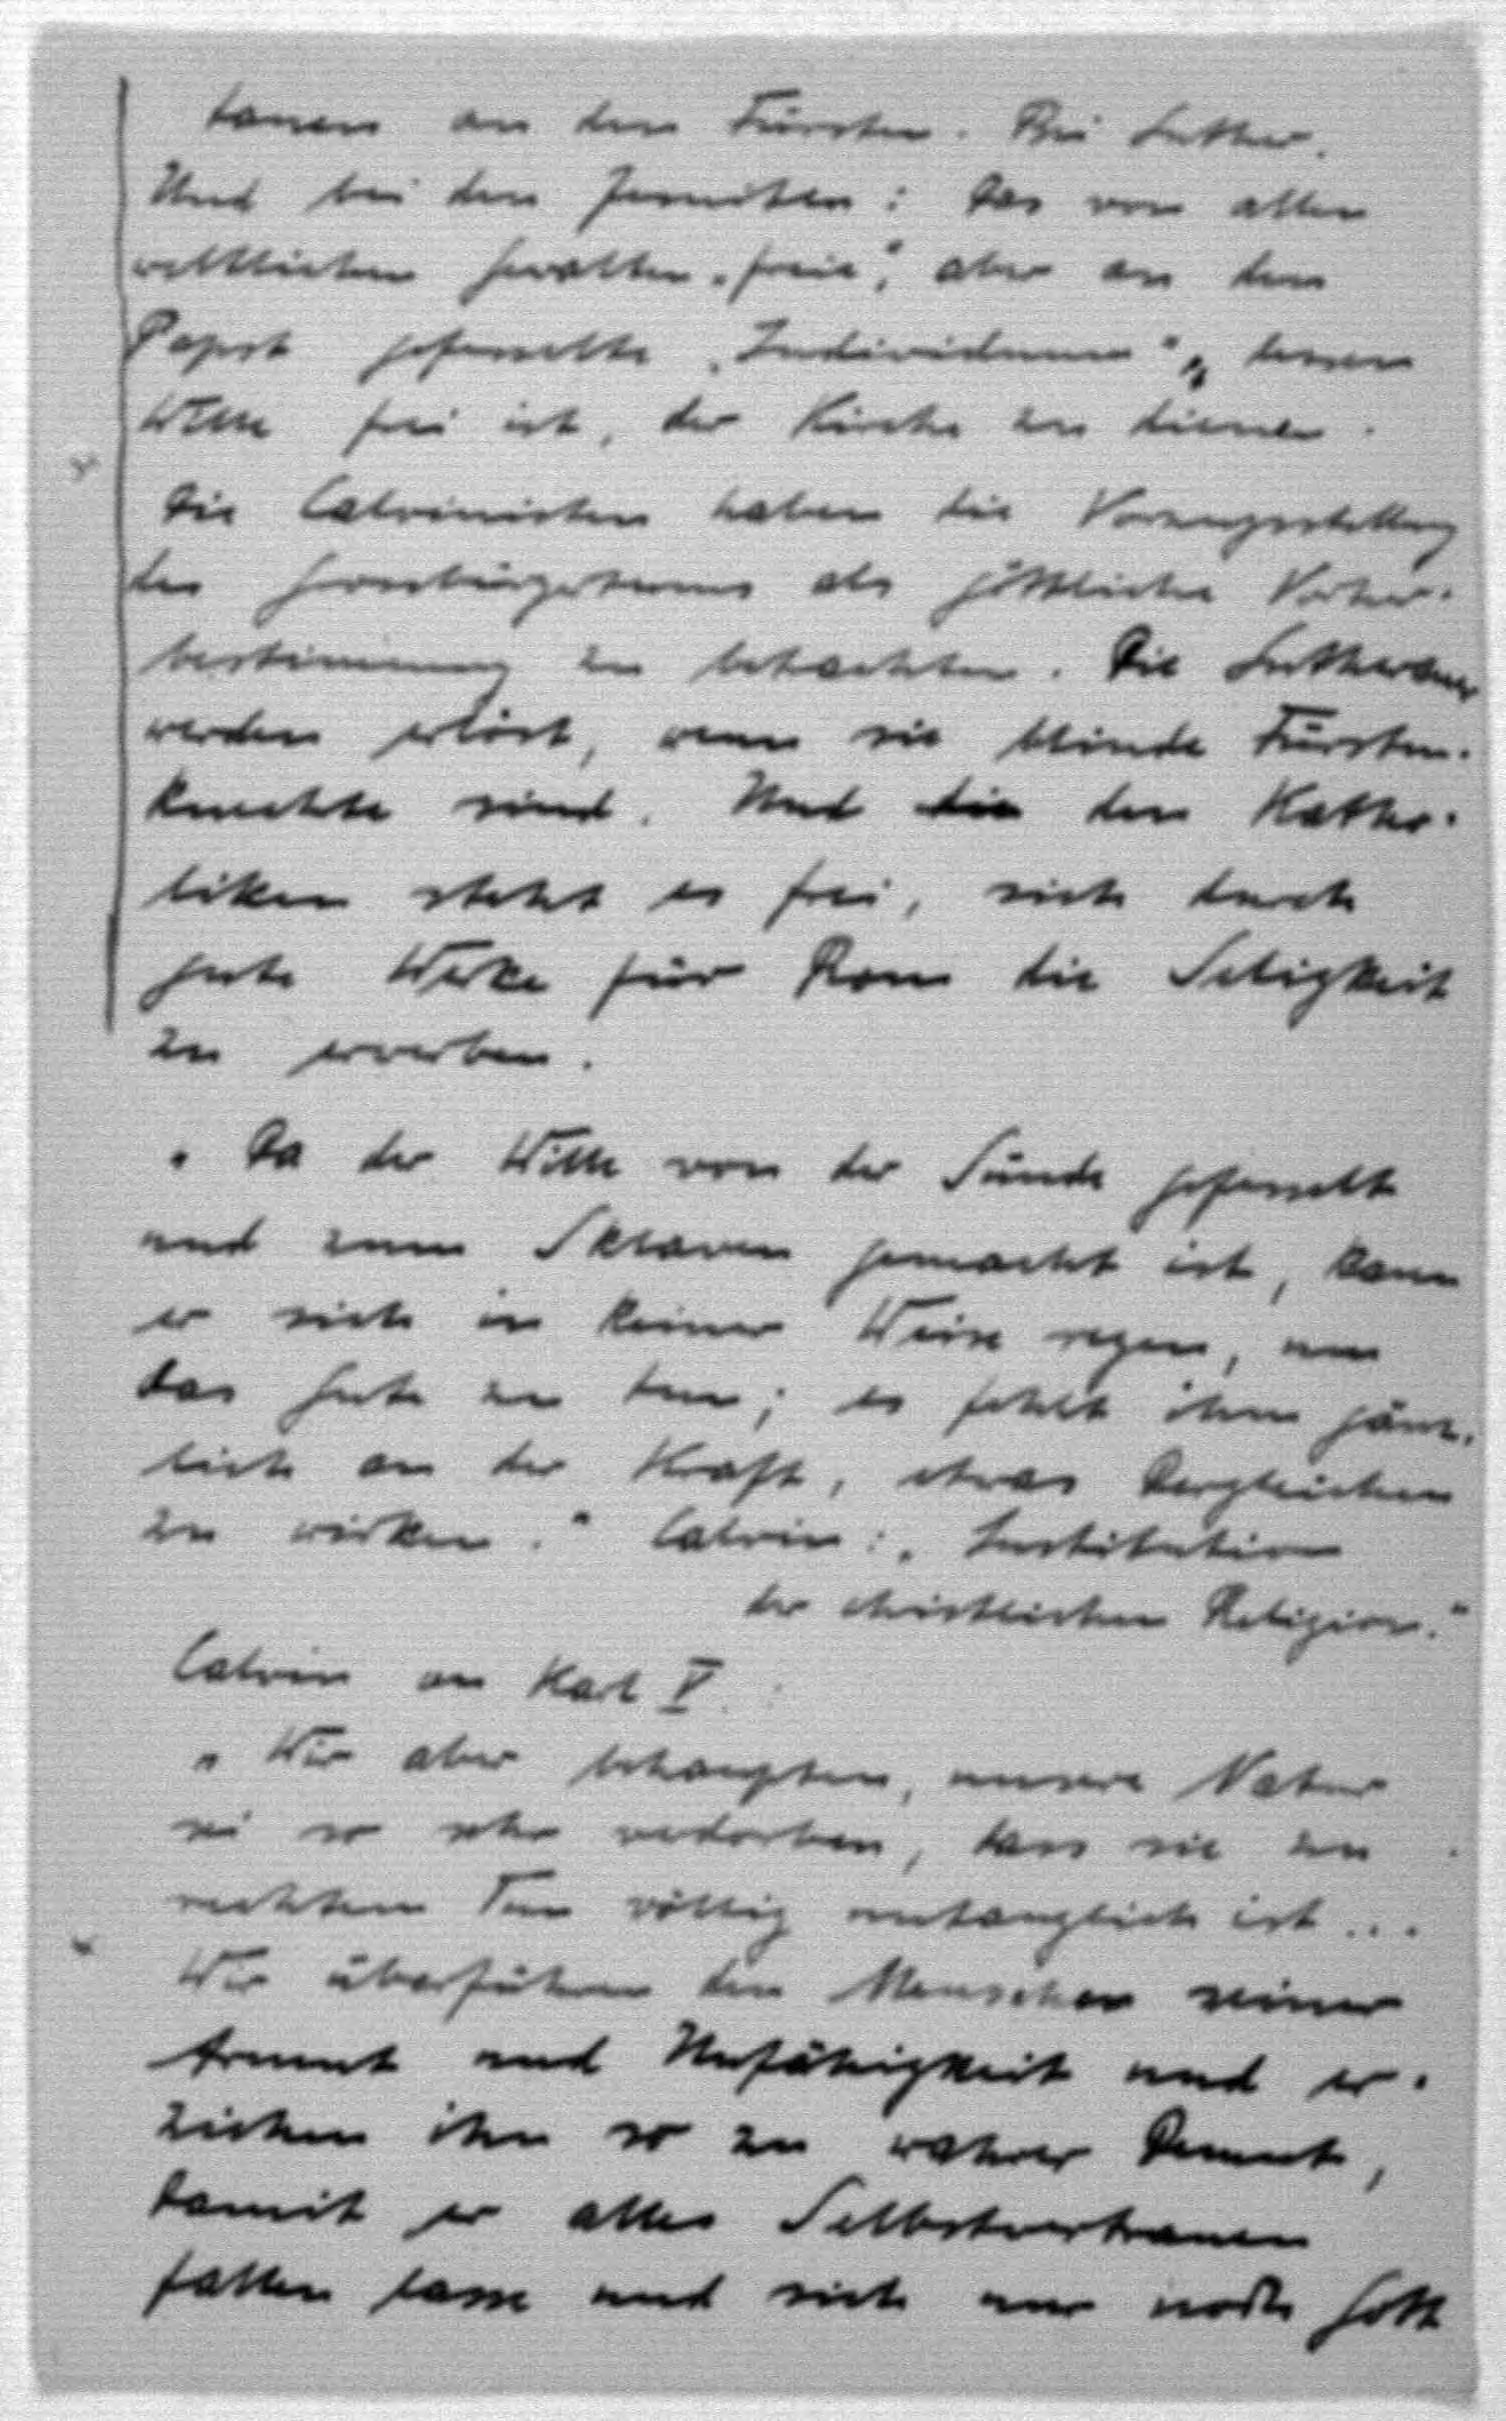 tanen an den Fürsten. Bei Luther.
Und bei den Jesuiten: Das von allen
weltlichen Gewalten „freie“, aber an den
Papst gefesselte „Individuum“, dessen
Wille frei ist, der Kirche zu dienen.
Die Calvinisten haben die Vorzugsstellung
des Grossbürgertums als göttliche Vorher-
bestimmung zu betrachten. Die Lutheraner
werden erlöst, wenn sie blinde Fürsten-
knechte sind. Und den Katho-
liken steht es frei, sich durch
gute Werke für Rom die Seligkeit
zu erwerben.
„Da der Wille von der Sünde gefesselt
und zum Sklaven gemacht ist, kann
er sich in keiner Weise regen, um
das Gute zu tun; es fehlt ihm gänz-
lich an der Kraft, etwas Dergleichen
zu wirken.“ Calvin: „Institution
der christlichen Religion.“
Calvin an Karl V.:
„Wir aber behaupten, unsere Natur
sei so sehr verdorben, dass sie zu
rechtem Tun völlig untauglich ist...
Wir überführen den Menschen seiner
Armut und Unfähigkeit und er-
ziehen ihn so zu wahrer Demut,
damit er alles Selbstvertrauen
fallen lasse und sich nur noch Gott